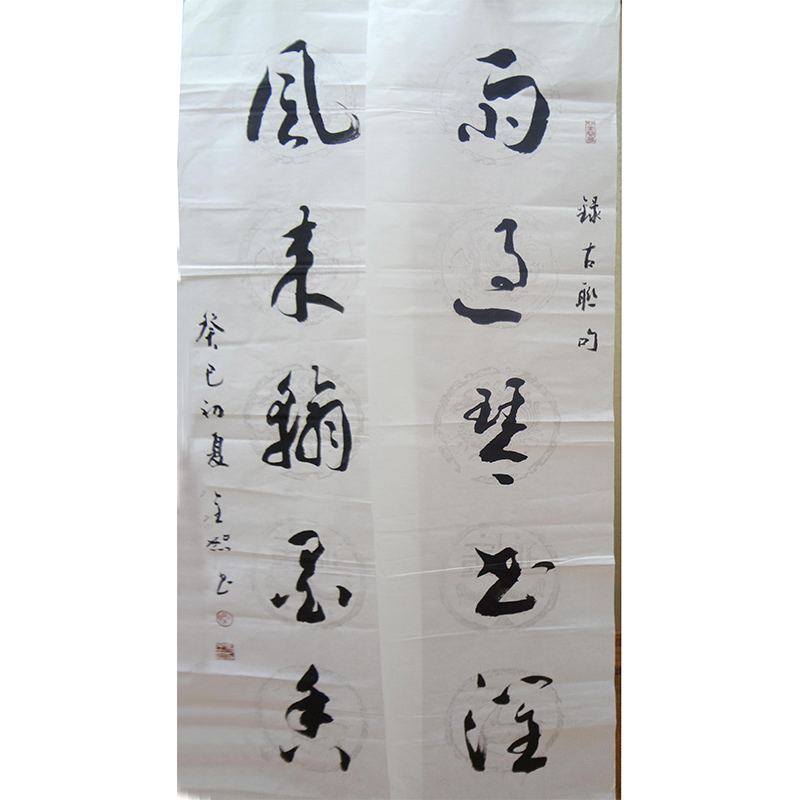 錄古聯句
雨過琴書潤
風來翰墨香
癸巳初夏